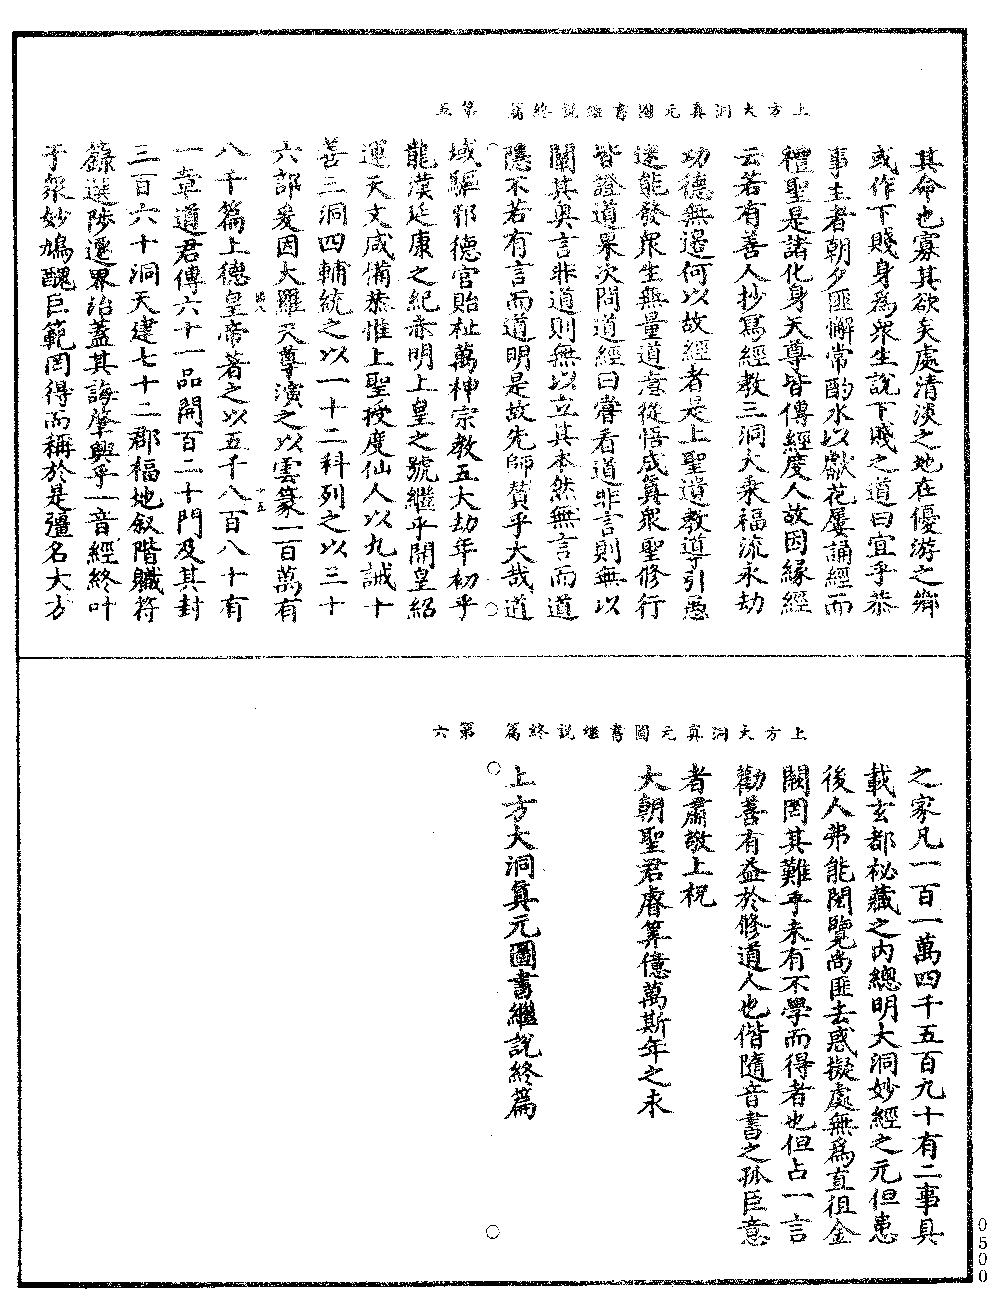 上方大洞真元圖書繼說終篇　第五
其命也寡其欲矣處清淡之地在優游之鄉
或作下賤身為眾生說下賤之道曰宜乎恭
事主者朝夕匪懈常酌水以獻花屢誦經而
禮聖是諸化身天尊皆傳經度人故因緣經
云若有善人抄寫經教三洞大乘福流永劫
功德無邊何以故經者是上聖遺教導引愚
迷能發眾生無量道意從悟成真眾聖修行
皆證道果次問道經曰嘗看道非言則無以
闡其奧言非道則無以立其本然無言而道
隱不若有言而道明是故先師贊乎大哉道
域驅邪德官貽祉萬神宗教五大劫年初乎
龍漢延康之紀赤明上皇之號繼乎開皇紹
運天文咸備恭惟上聖授度仙人以九誡十
善三洞四輔統之以一十二科列之以三十
六部爰因大羅天尊演之以雲篆一百萬有
八千篇上德皇帝著之以五千八百八十有
一章道君傳六十一品開百二十門及其封
三百六十洞天建七十二郡福地敘階職符
籙選陟遷界治蓋其誨肇興乎一音經終叶
于眾妙鳩醜巨範罔得而稱於是彊名大方
上方大洞真元圖書繼說終篇　第六
之家凡一百一萬四千五百九十有二事具
載玄都祕藏之內總明大洞妙經之元但患
後人弗能閱覽尚匪去惑擬處無為直徂金
闕罔其難乎未有不學而得者也但占一言
勸善有益於修道人也偕隨音書之孤臣意
者肅敬上祝
大朝聖君睿筭億萬斯年之未
上方大洞真元圖書繼說終篇
0500